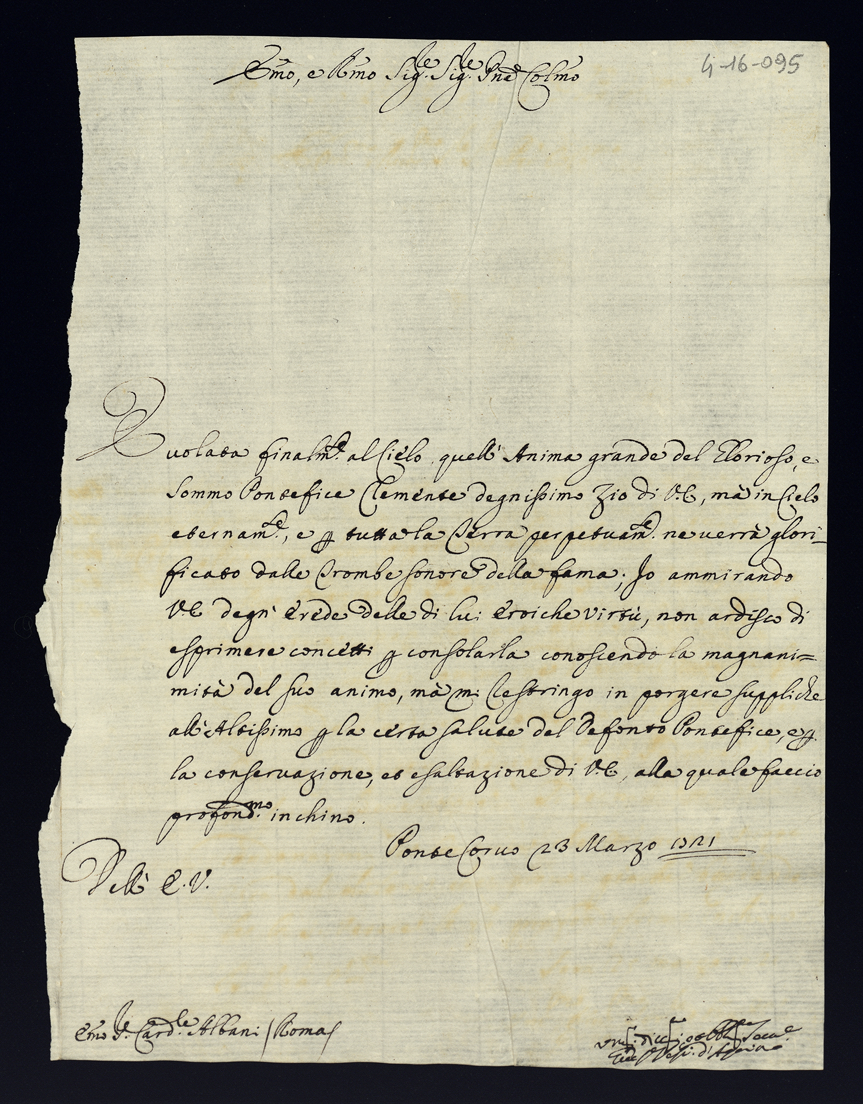 4-16-095
Emo, e Rmo Sig.re Sig.re Pne Colmo
È volata finalm.te al Cielo quell' Anima grande del Glorioso, e
Sommo Pontefice Clemente degnissimo Zio di V.E, mà in Cielo
eternam.te, e p tutta la Terra perpetuam.te ne verrà glori-
ficato dalle Trombe sonore della fama; Io ammirando
V.E degn' Erede delle di lui Eroiche Virtù, non ardisco di
esprimere concetti p consolarla conoscendo la magnani=
mità del suo animo, mà mi restringo in porgere suppliche
all' Altissimo p la certa salute del Defonto Pontefice, e p
la conservazione, et esaltazione di V.E, alla quale faccio
profond.mo inchino.
Ponte Corvo 23 Marzo 1721
Dell' E.V.
Emo S.r Card.le Albani / Roma /